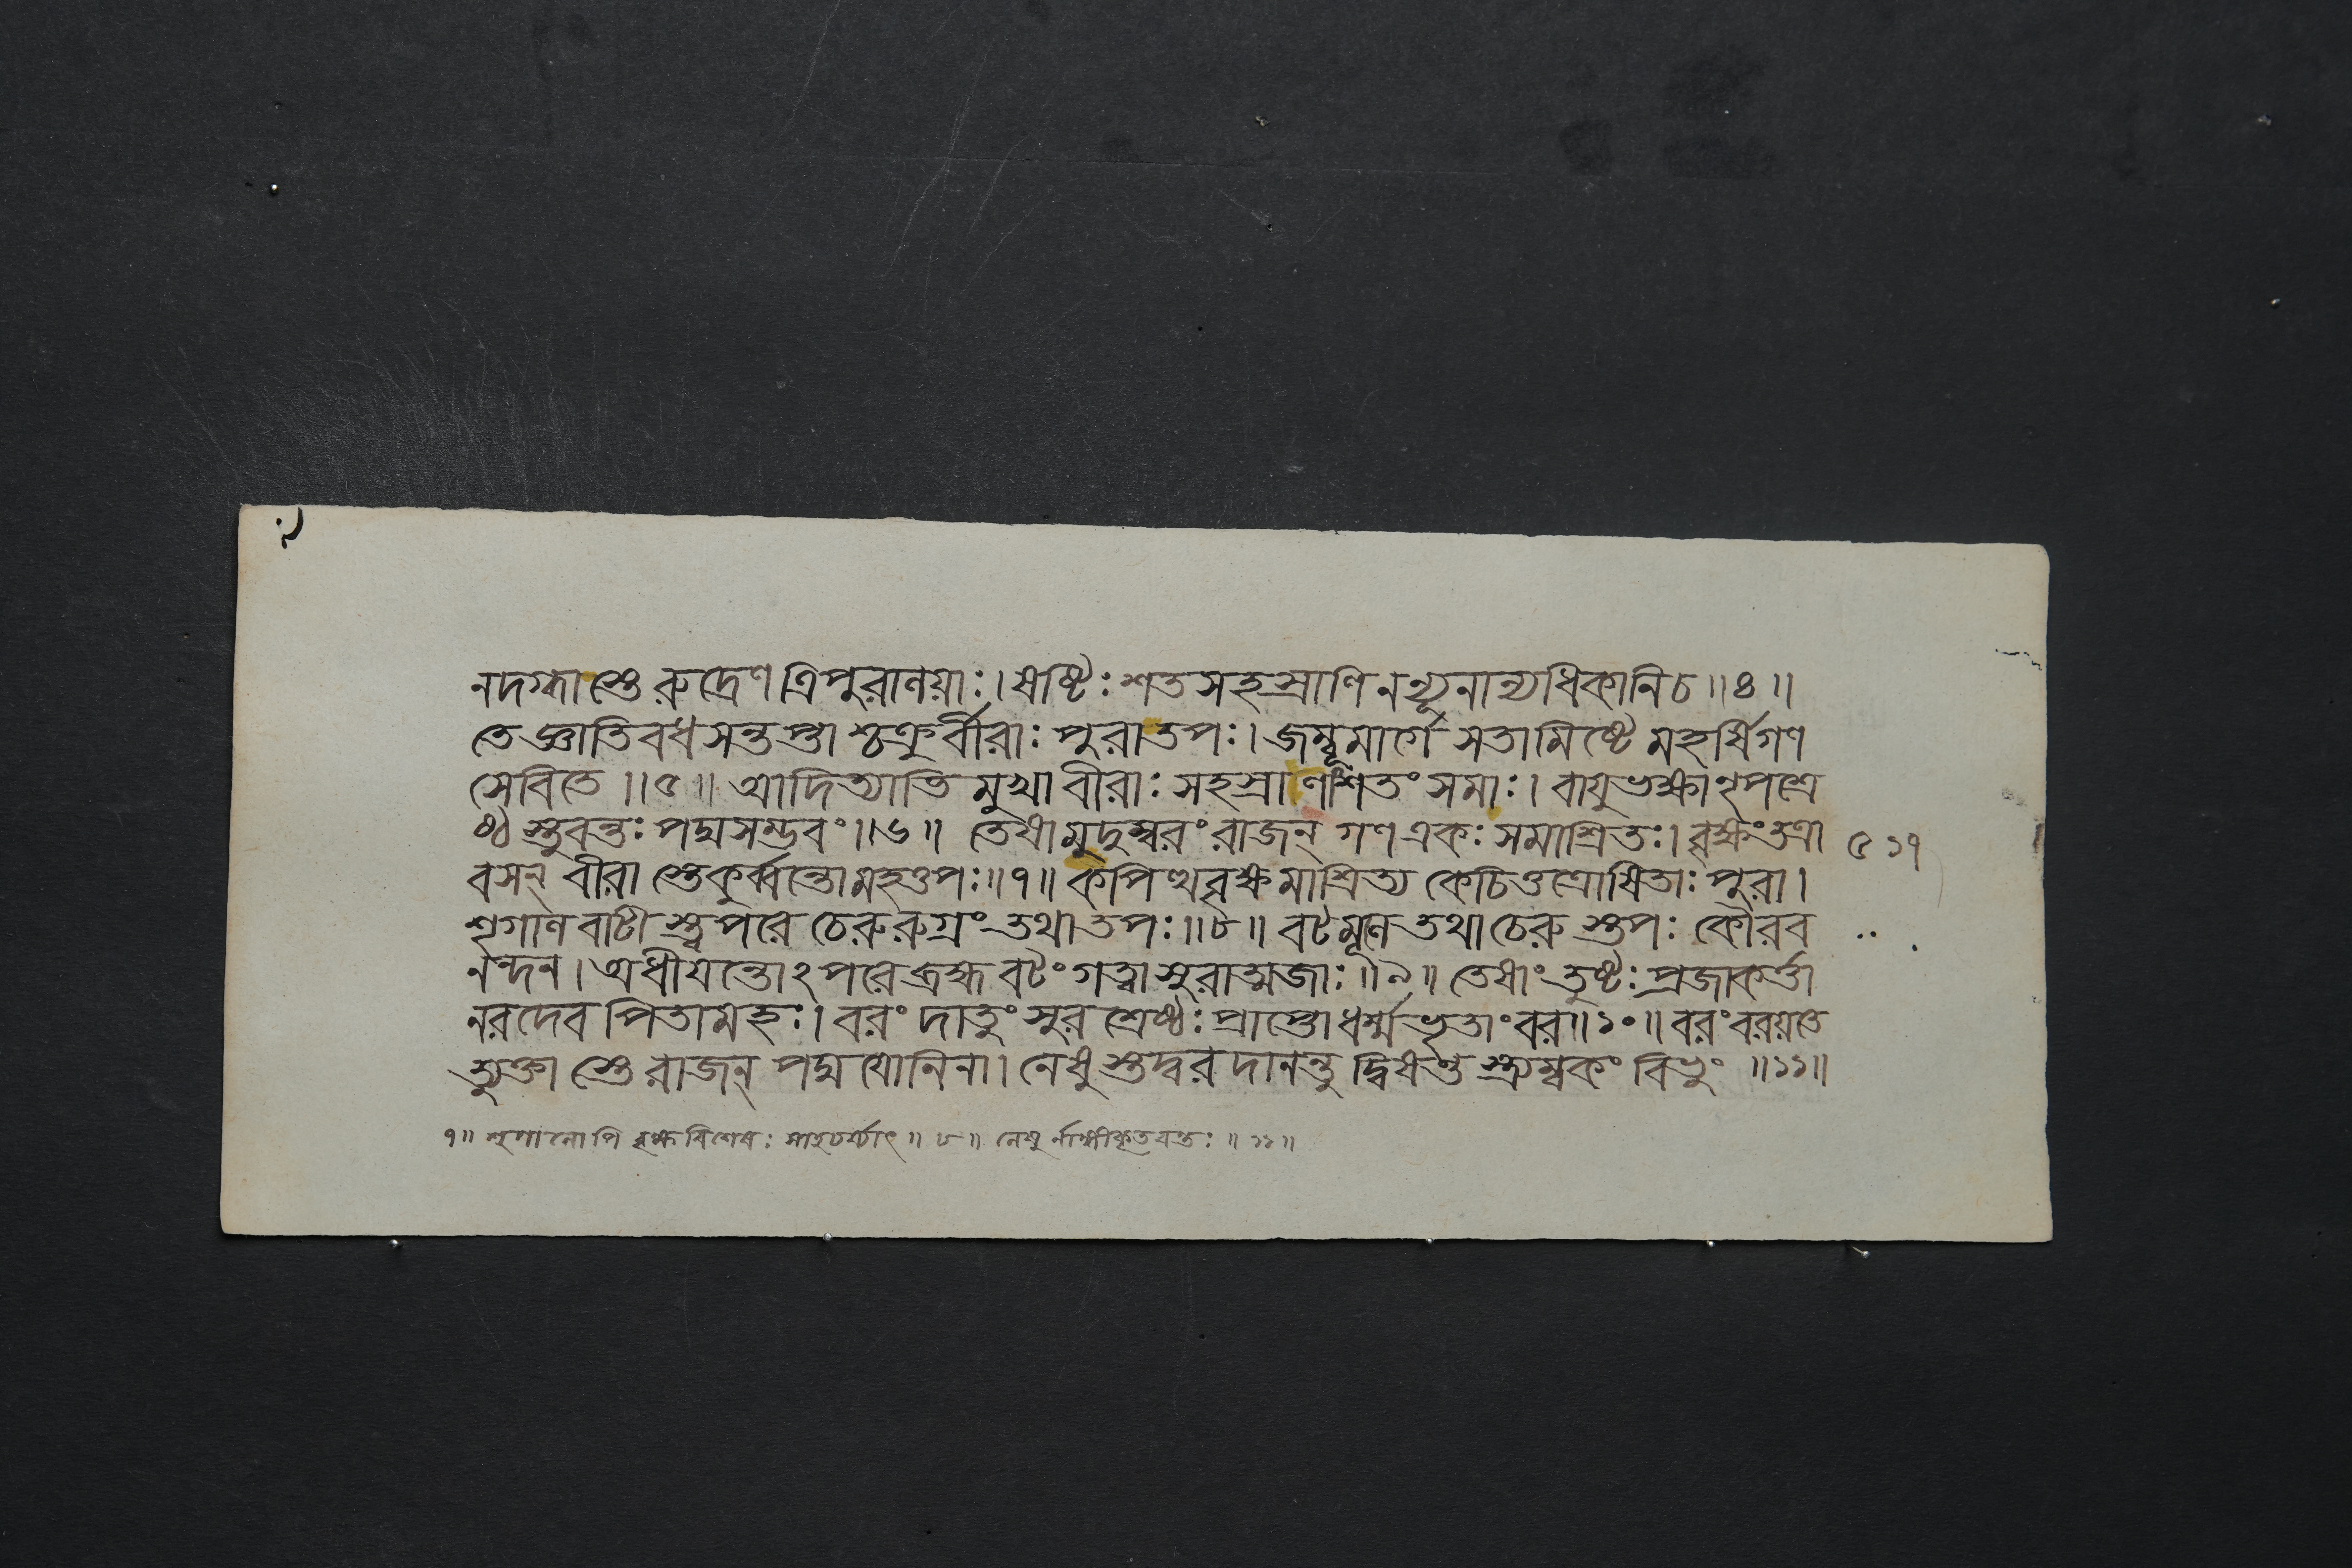 নদগ্ধাস্তে রুদ্রেণ ত্রিপুরালয়াঃ। ষষ্টিঃ শতসহস্রাণি নন্যূনান্যধিকানি চ॥৪॥
তে জ্ঞাতিবধসন্তপ্তাশ্চক্রুর্বীরাঃ পুরা তপঃ। জম্বূমার্গে সতামিষ্টে মহর্ষিগণ
সেবিতে॥৫॥ আদিত্যাভিমুখা বীরাঃ সহস্রাণি শতং সমাঃ। বায়ুভক্ষা নৃপশ্রে
ষ্ঠ স্তুবন্তঃ পদ্মসম্ভবং॥৬॥ তেষামুদুম্বরং রাজন্ গণ একঃ সমাশ্রিতঃ। বৃক্ষং তত্রা
বসন্ বীরাস্তে কুর্ব্বন্তো মহত্তপঃ॥৭॥ কপিত্থবৃক্ষমাশ্রিত্য কেচিত্তত্রোষিতাঃ পুরা।
শৃগালবাটীস্ত্বপরে চেরুরুগ্রং তথা তপঃ॥৮॥ বটমূলে তথা চেরুস্তপঃ কৌরব
নন্দন। অধীয়ন্তোঽপরে ব্রহ্ম বটং গত্বা সুরাত্মজাঃ॥৯॥ তেষাং তুষ্টঃ প্রজাকর্ত্তা
নরদেব পিতামহঃ। বরং দাতুং সুরশ্রেষ্ঠঃ প্রাপ্তো ধর্ম্মভৃতাং বর॥১০॥ বরং বরয়তে
ত্যুক্তাস্তে রাজন্ পদ্মযোনিনা। নেষুস্তদ্বরদানন্তু দ্বিষন্তস্ত্র্যম্বকং বিভুং॥১১॥
৭॥ শৃগালোপি বৃক্ষবিশেষঃ সাহচর্য্যাৎ॥৮॥ নেষুর্নাঙ্গীকৃতবন্তঃ॥১১॥
৫১৭